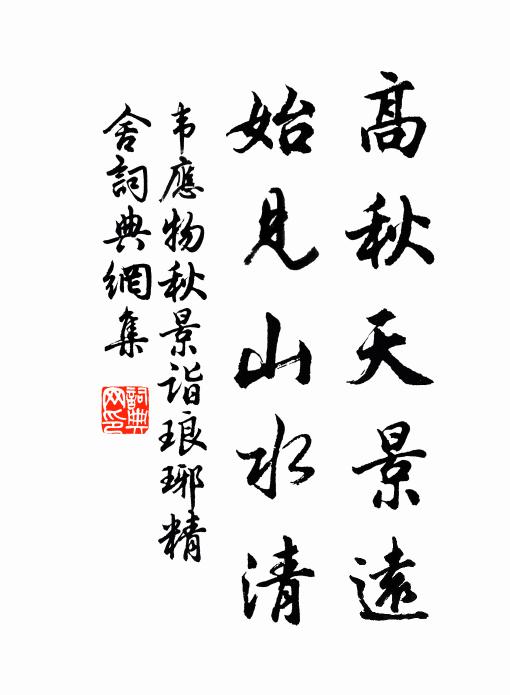 高秋天景遠
始見山水清
韦應物秋景詣琅琊精
舍詞典網集
詞典
网印